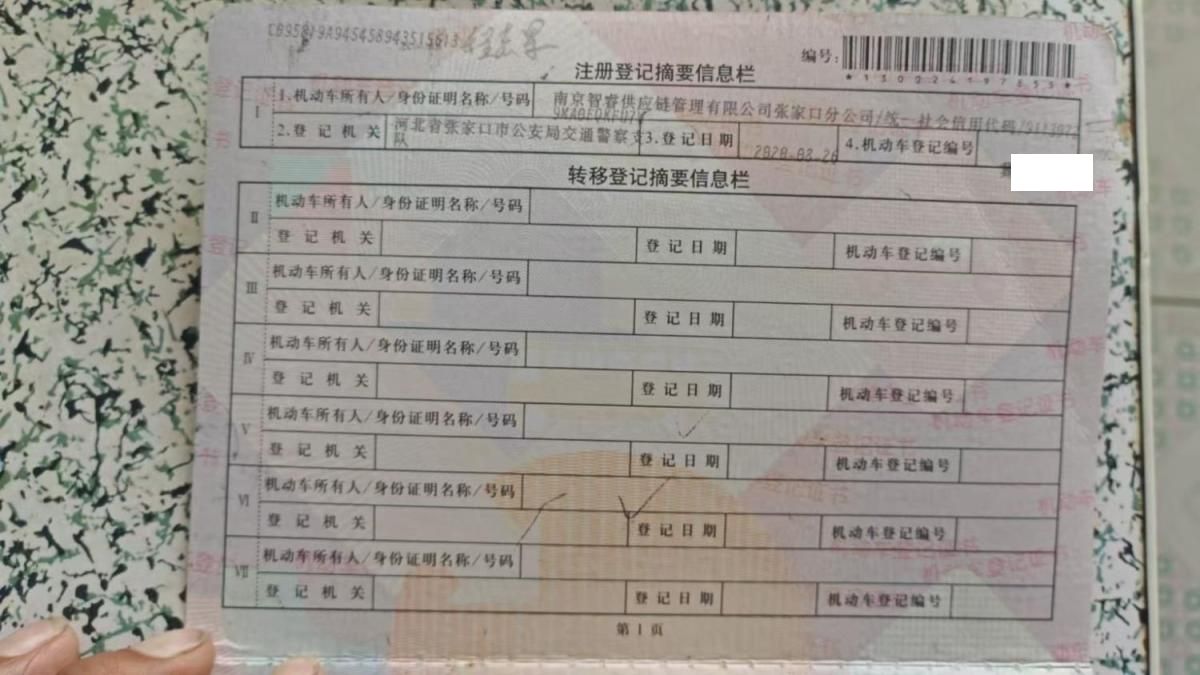 注册登记摘要信息栏
编号:
Ⅰ
1.机动车所有人/身份证明名称/号码
南京智睿供应链管理有限公司张家口分公司/统一社会信用代码
2.登记机关
河北省张家口市公安局交通警察支
队
3.登记日期
2020-03-26
4.机动车登记编号
转移登记摘要信息栏
Ⅱ
机动车所有人/身份证明名称/号码
登记机关 登记日期 机动车登记编号
Ⅲ
机动车所有人/身份证明名称/号码
登记机关 登记日期 机动车登记编号
Ⅳ
机动车所有人/身份证明名称/号码
登记机关 登记日期 机动车登记编号
Ⅴ
机动车所有人/身份证明名称/号码
登记机关 登记日期 机动车登记编号
Ⅵ
机动车所有人/身份证明名称/号码
登记机关 登记日期 机动车登记编号
Ⅶ
机动车所有人/身份证明名称/号码
登记机关 登记日期 机动车登记编号
第1页